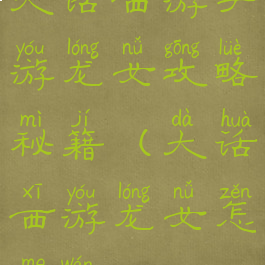 大话西游手
yóu lóng nǚ gōng lüè
游龙女攻略
mì jí dà huà
秘籍（大话
xī yóu lóng nǚ zěn
西游龙女怎
me wán